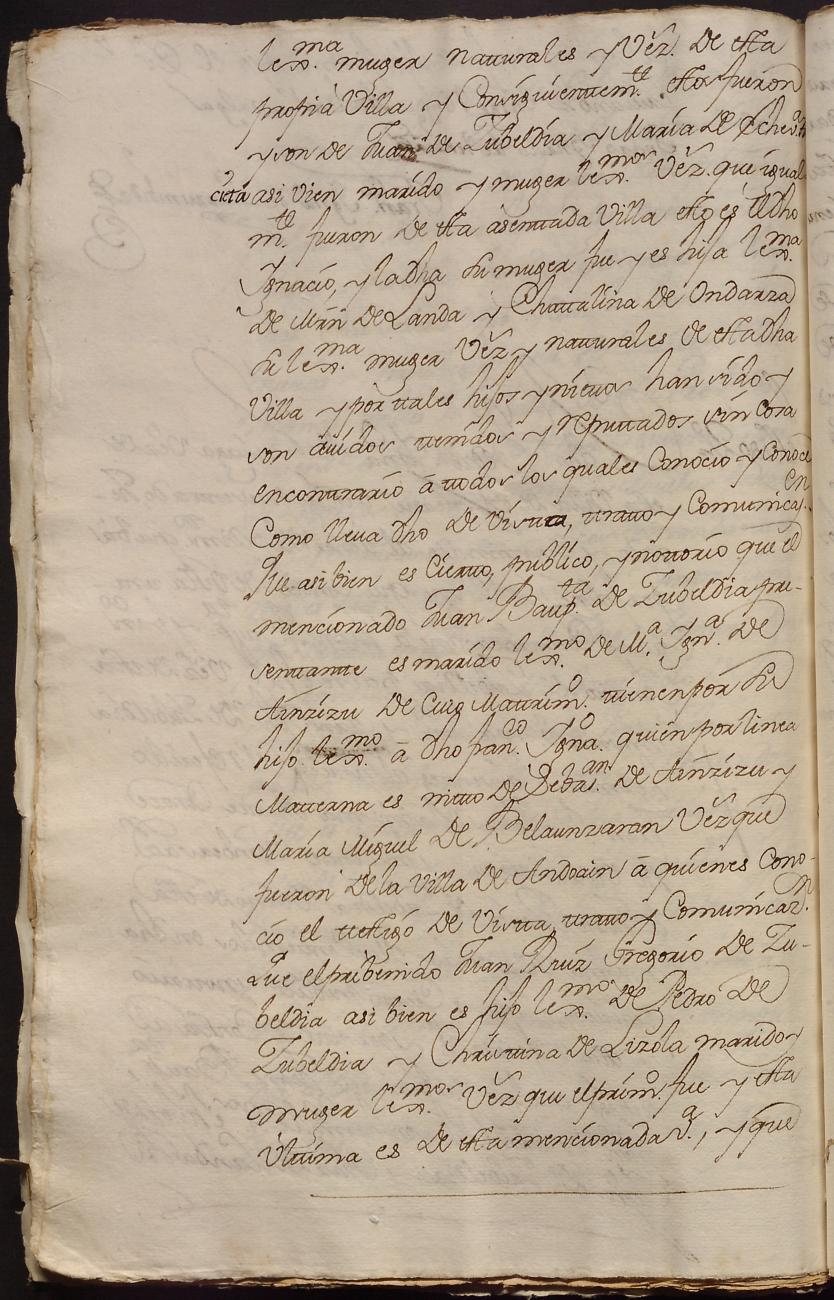 lexᵐᵃ. muger naturales y Vez̃. de esta
propia Villa y Consiguientemᵗᵉ. estos fueron
y son de Juan de Zubeldia y María de Echevᵃ.
asi vien marido y muger lexᵐᵒˢ. Vez̃. que igual
mᵗᵉ. fueron de esta asentada Villa esto es el dho
Ignacio, y la dha su muger fue y es hija lexᵐᵃ.
de Mrn̄ de Landa y Chatalina de Ondarza
su lexᵐᵃ. muger Vez̃. y naturales de esta dha
Villa y por tales hijos y nietos han sido y
son auidos tenidos y reputados sin cosa
encontrario â todos los quales Conocio y Conoce
Como lleua dho de Vista, trato y Comunicazᵉⁿ.
Que asi bien es Cierto, publico, y notorio que el
mencionado Juan Baupᵗᵃ. de Zubeldia pre-
sentante es marido lexᵐᵒ. de Mᵃ. Ignᵃ. de
Ainzizu de Cuio Matrimᵒ. tienen por su
hijo lexᵐᵒ. â dho franᶜᵒ. Ignᵒ. quien por linea
Materna es nieto de Sebasᵃⁿ. de Ainzizu y
María Miguel de Belaunzaran Vez̃. que
fueron de la Villa de Andoain â quienes Cono-
cio el testigo de Vista, trato y Comunicazⁿ.
Que el preuenido Juan Cruz Gregorio de Zu-
beldia asi bien es hijo lexᵐᵒ. de Pedro de
Zubeldia y Christina de Lizola marido y
muger lexᵐᵒˢ. Vez̃. que el primᵒ. fue y esta
Vltima es de esta mencionada Vᵃ., y que